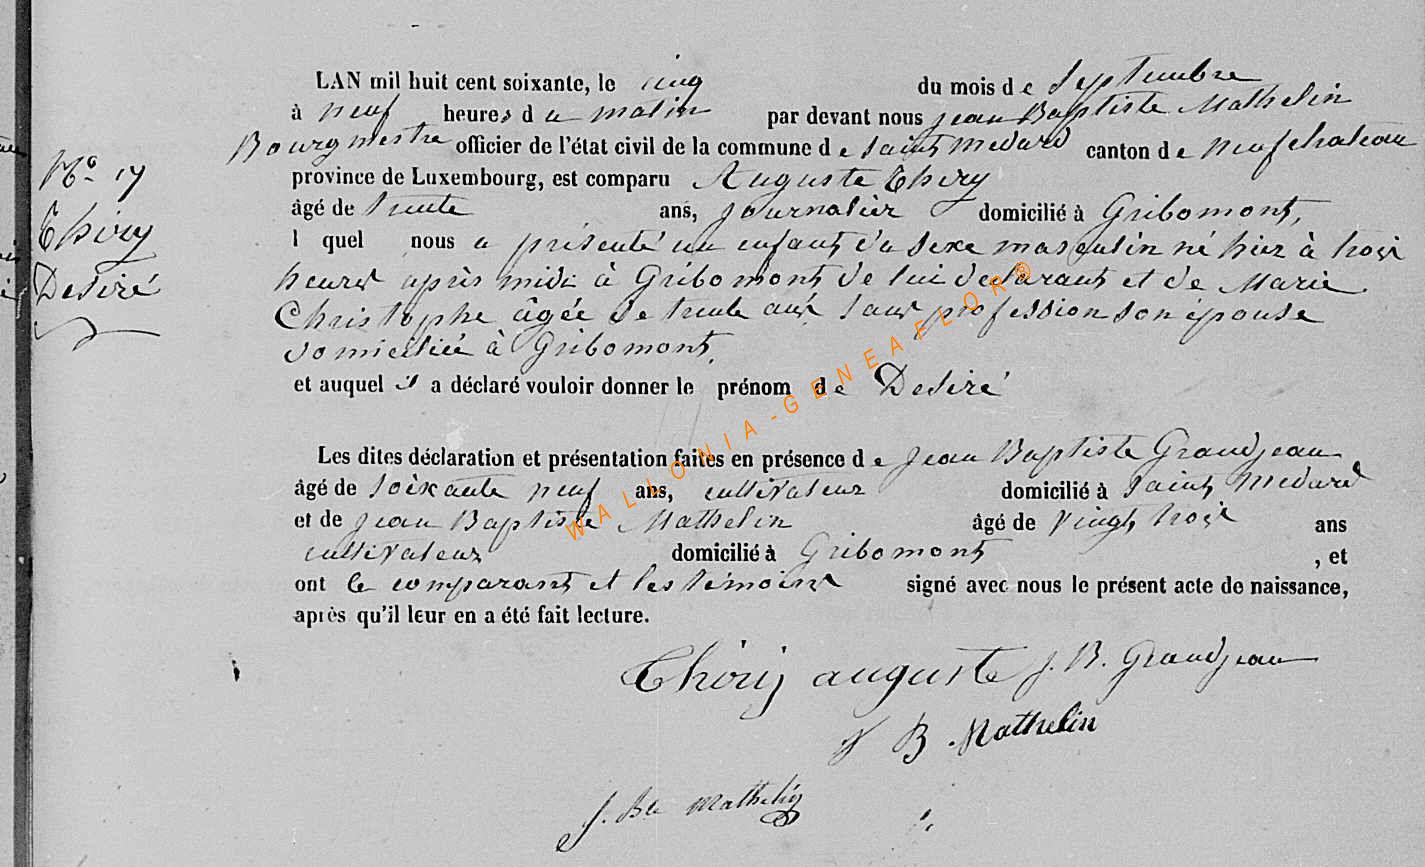 LAN mil huit cent soixante, le cinq du mois de Septembre
à neuf heures du matin par devant nous jean Baptiste Mathelin
Bourgmestre officier de l'état civil de la commune de Saint Medard canton de Neufchateau
province de Luxembourg, est comparu Auguste Thiry
âgé de trente ans, journalier domicilié à Gribomont,
l quel nous a présenté un enfant du sexe masculin né hier à trois
heures après midi à Gribomont de lui déclarant et de Marie
Christophe âgée de trente ans sans profession son épouse
domiciliée à Gribomont,
et auquel il a déclaré vouloir donner le prénom de Desiré
Les dites déclaration et présentation faites en présence de Jean Baptiste Grandjean
âgé de soixante neuf ans, cultivateur domicilié à Saint Medard
et de Jean Baptiste Mathelin âgé de vingt trois ans
cultivateur domicilié à Gribomont , et
ont le comparant et les témoins signé avec nous le présent acte de naissance,
après qu'il leur en a été fait lecture.
No. 17
Thiry
Desiré
Thiry auguste J. B. Grandjean
J B Mathelin
J. Bte Mathelin
WALLONIA-GENEAFLOR®